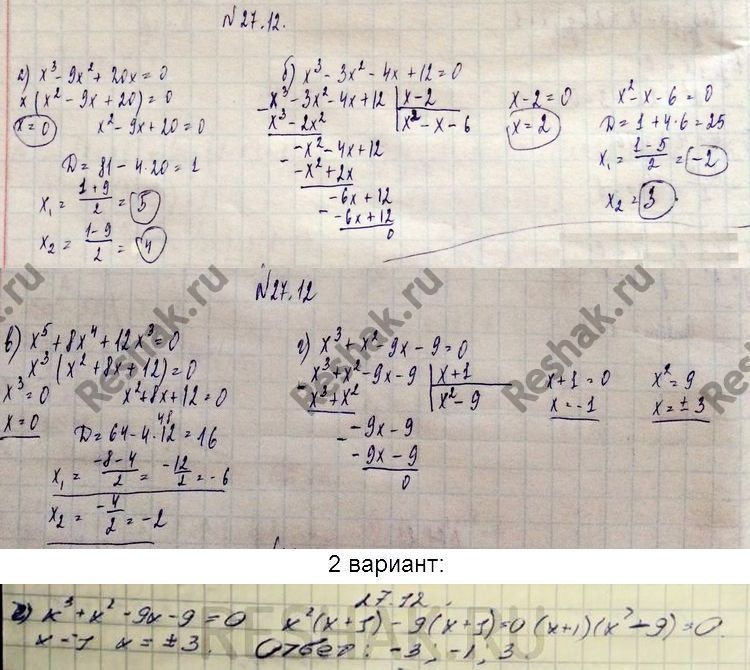 №27.12.
а) x³ - 9x² + 20x = 0
x (x² - 9x + 20) = 0
x = 0 x² - 9x + 20 = 0
D = 81 - 4·20 = 1
x₁ = (1+9)/2 = 5
x₂ = (1-9)/2 = 4
б) x³ - 3x² - 4x + 12 = 0
x³ - 3x² - 4x + 12 | x - 2
x³ - 2x² | x² - x - 6
-x² - 4x + 12
-x² + 2x
-6x + 12
-6x + 12
0
x - 2 = 0
x = 2
x² - x - 6 = 0
D = 1 + 4·6 = 25
x₁ = (1-5)/2 = -2
x₂ = 3
№27.12
в) x⁵ + 8x⁴ + 12x³ = 0
x³ (x² + 8x + 12) = 0
x³ = 0 x² + 8x + 12 = 0
x = 0
48
D = 64 - 4·12 = 16
x₁ = (-8-4)/2 = -12/2 = -6
x₂ = -4/2 = -2
г) x³ + x² - 9x - 9 = 0
x³ + x² - 9x - 9 | x + 1
x³ + x² | x² - 9
-9x - 9
-9x - 9
0
x + 1 = 0
x = -1
x² = 9
x = ± 3
Reshak.ru
Reshak.ru
Reshak.ru
2 вариант:
27.12.
г) x³ + x² - 9x - 9 = 0 x²(x+1) - 9(x+1) = 0 (x+1)(x² - 9) = 0.
x = -1 x = ± 3. Ответ: -3, -1, 3.
RESHAK.RU